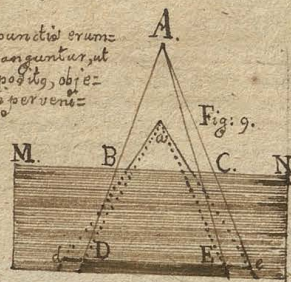 A.
punctis erum=
anguntur, ut
posito, obje=
perveni=
Fig: 9.
a
M. B C. N
d D E e